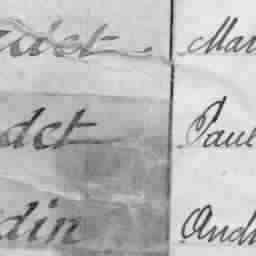 uiet Mar
det Paul
din Andr